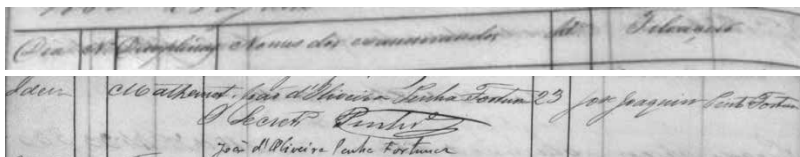 Dia N. Disciplinas Nomes dos examinandos Id. Filiação
Idem Mathemat. João d'Oliveira Penha Fortuna 23 José Joaquim Penha Fortuna
O Secret.
João d'Oliveira Penha Fortuna